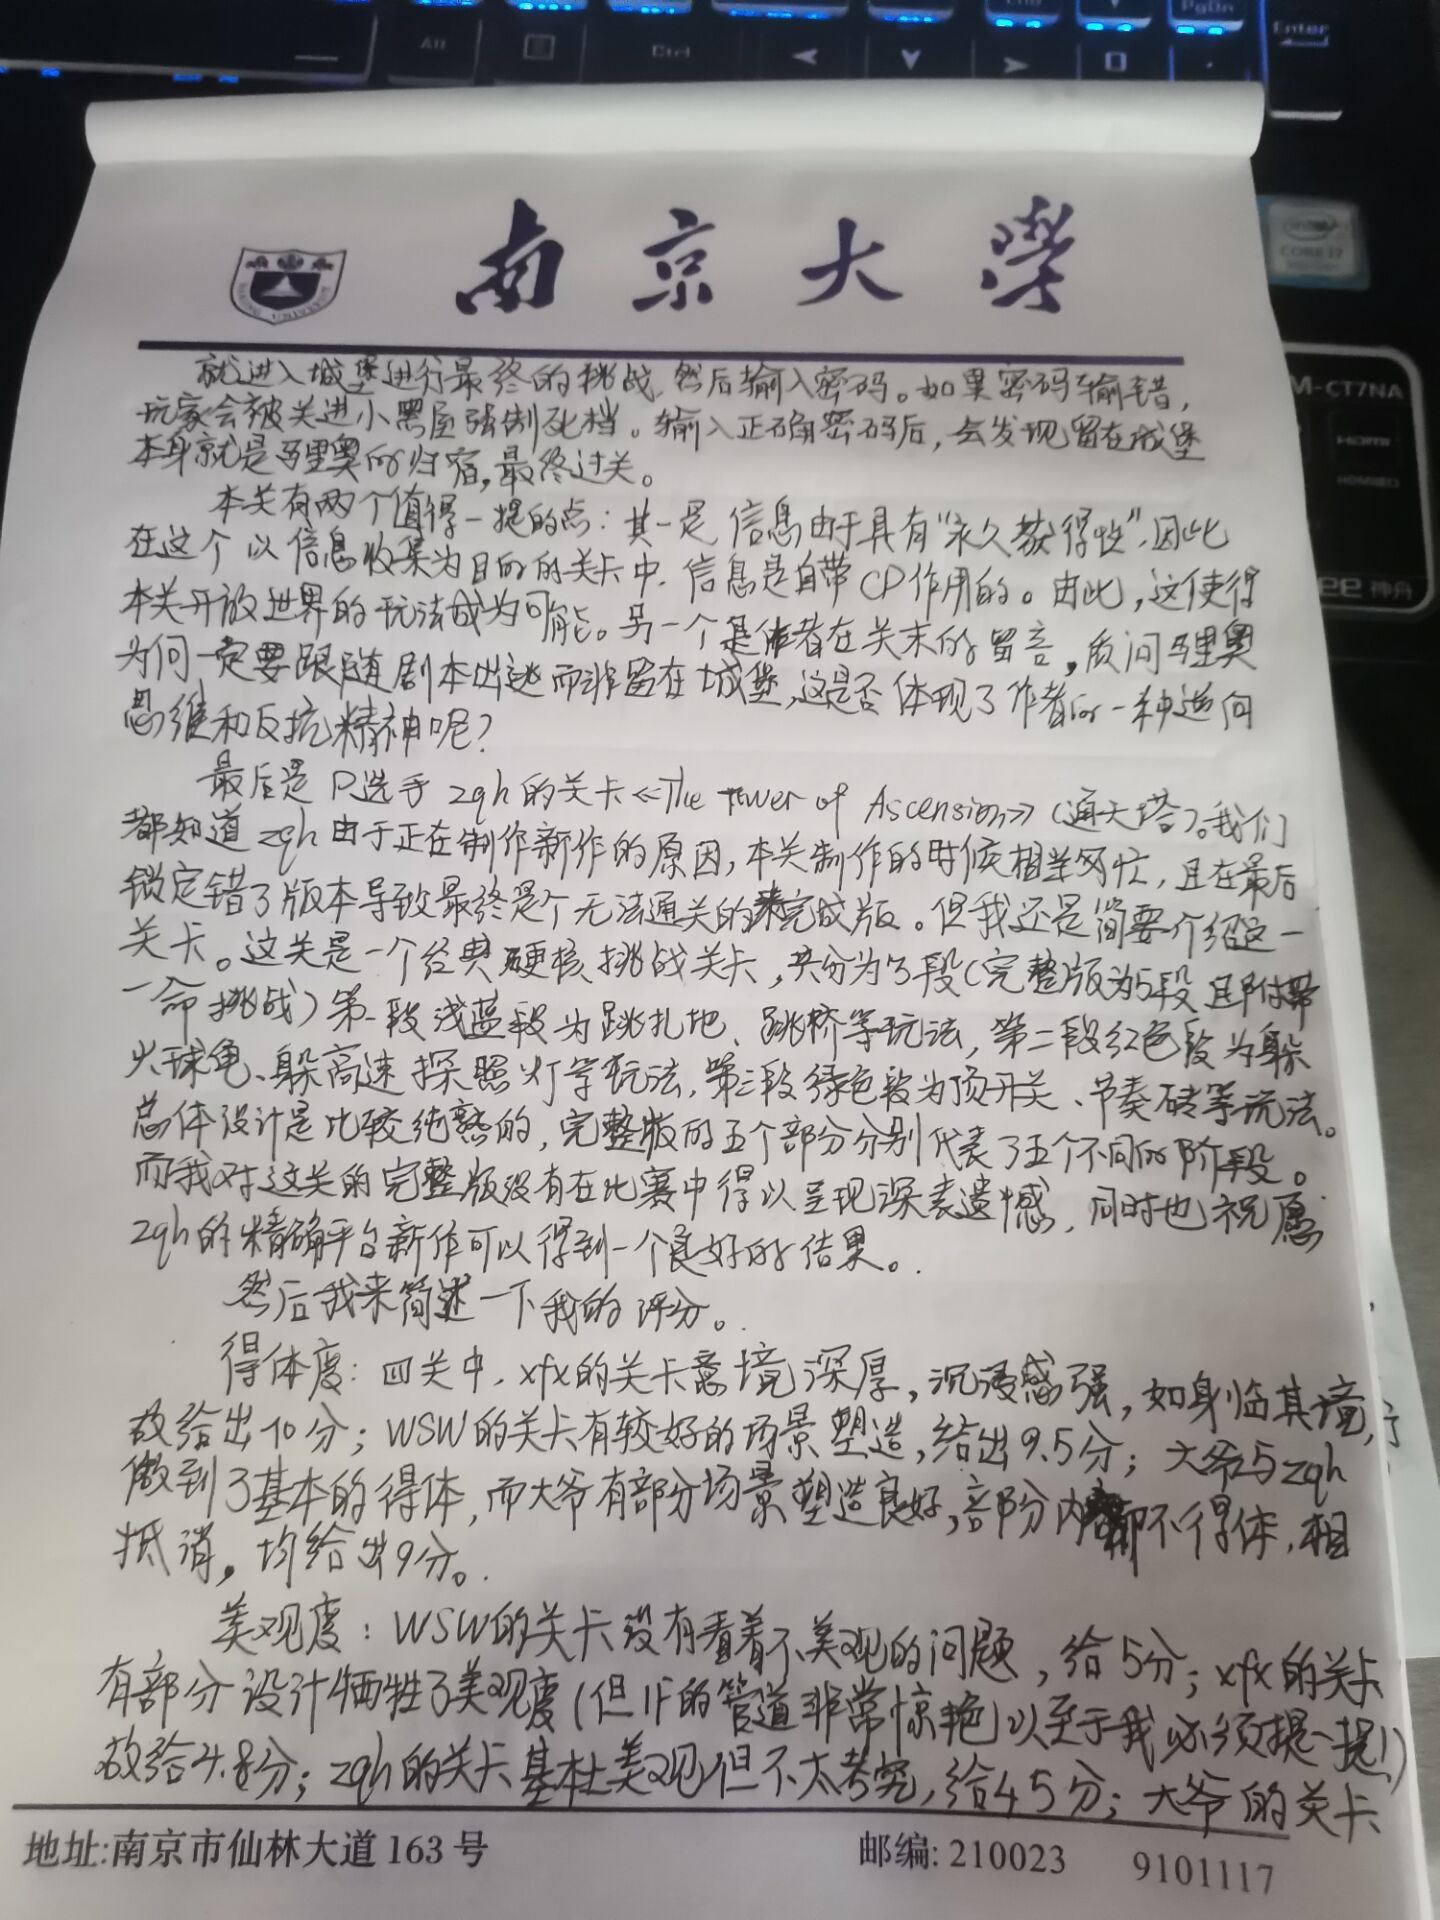 Alt
Ctrl
PgDn
Enter
intel
CORE i7
M-CT7NA
HDMI
神舟
南京大學
就进入城堡进行最终的挑战,然后输入密码。如果密码输错,
玩家会被关进小黑屋强制死档。输入正确密码后,会发现留在城堡
本身就是马里奥的归宿,最终过关。
本关有两个值得一提的点:其一是信息由于具有“永久获得性”,因此
在这个以信息收集为目的的关卡中,信息是自带CP作用的。由此,这使得
本关开放世界的玩法成为可能。另一个是作者在关末的留言,质问马里奥
为何一定要跟随剧本出逃而非留在城堡,这是否体现了作者的一种逆向
思维和反抗精神呢?
最后是P选手zqh的关卡《The Tower of Ascension》(通天塔)。我们
都知道zqh由于正在制作新作的原因,本关制作的时候相当匆忙,且在最后
锁定错了版本导致最终是个无法通关的未完成版。但我还是简要介绍这一
关卡。这关是一个经典硬核挑战关卡,共分为3段(完整版为5段且附带
一命挑战)第一段浅蓝段为跳扎地、跳桥等玩法,第二段红色段为躲
火球龟、躲高速探照灯等玩法,第三段绿色段为顶开关、节奏砖等玩法。
总体设计是比较纯熟的,完整版的五个部分分别代表了五个不同的阶段。
而我对这关的完整版没有在比赛中得以呈现深表遗憾,同时也祝愿
zqh的精确平台新作可以得到一个良好的结果。
然后我来简述一下我的评分。
得体度:四关中,xfx的关卡意境深厚,沉浸感强,如身临其境,
故给出10分;WSW的关卡有较好的场景塑造,给出9.5分;大爷与zqh
做到了基本的得体,而大爷有部分场景塑造良好,部分内部不得体,相
抵消,均给出9分。
美观度:WSW的关卡没有看着不美观的问题,给5分;xfx的关卡
有部分设计牺牲了美观度(但1F的管道非常惊艳)以至于我必须提一提!)
故给4.8分;zqh的关卡基本美观但不太考究,给4.5分;大爷的关卡
地址:南京市仙林大道163号
邮编:210023
9101117